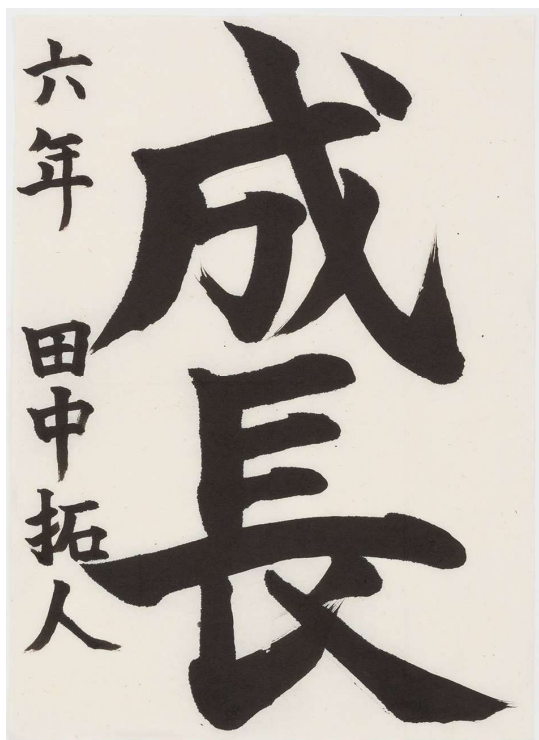 成長
六年 田中拓人